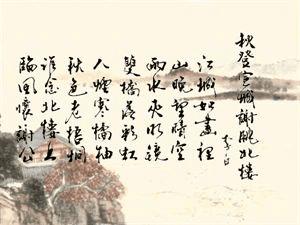 秋登宣城謝脁北樓
李白
江城如畫裡
山晚望晴空
兩水夾明鏡
雙橋落彩虹
人煙寒橘柚
秋色老梧桐
誰念北樓上
臨風懷謝公